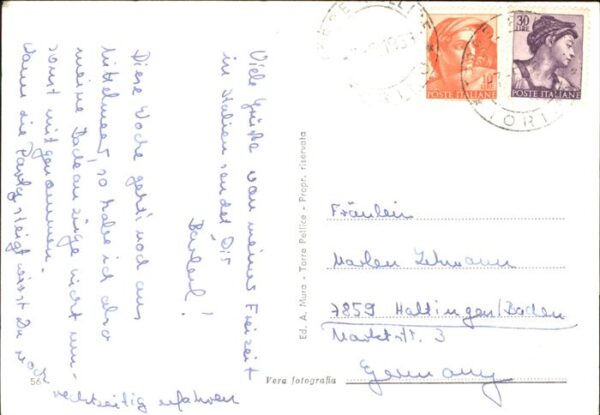 Viele Grüße von meiner Freizeit
in Italien sendet Dir
Bärbel!
Diese Woche geht's noch ans
Mittelmeer, so habe ich also
meine Badeanzüge nicht um-
sonst mitgenommen.
Wann die Party steigt wirst Du noch
rechtzeitig erfahren
56
Vera fotografia
Ed. A. Mura - Torre Pellice - Propr. riservata
POSTE ITALIANE
30
LIRE
POSTE ITALIANE
Fräulein
Marlen Lehmann
7859 Haltingen/Baden
Marktstr. 3
Germany